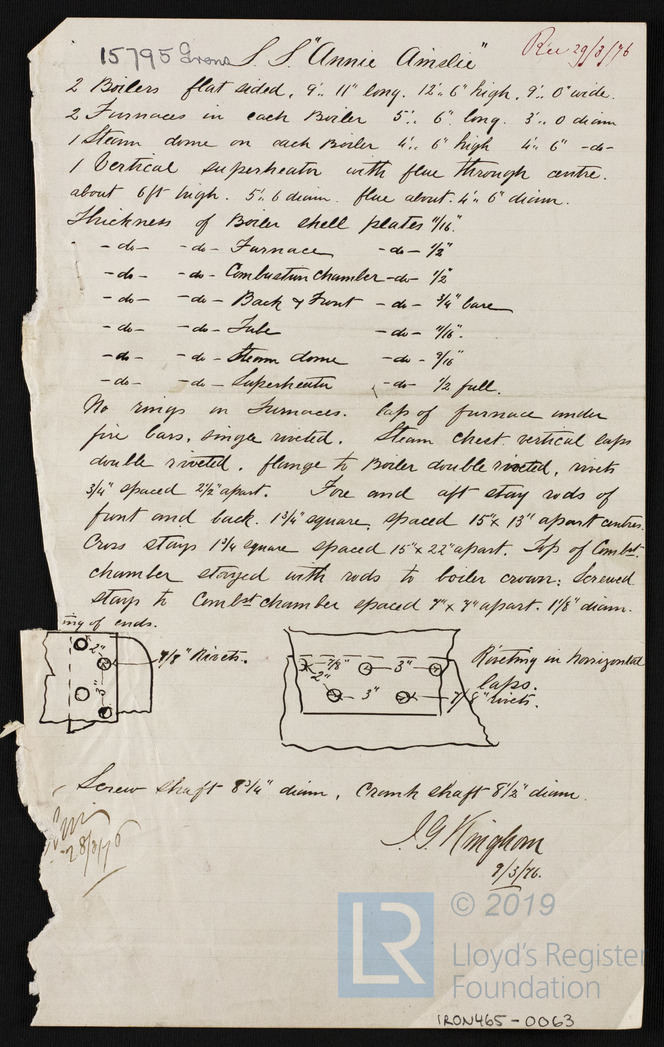 15795 Irons S. S. "Annie Ainslie" Rec 29/3/76
2 Boilers flat sided, 9'.. 11" long. 12'.. 6" high, 9'.. 0" wide.
2 Furnaces in each Boiler 5'.. 6" long. 3'.. 0 diam
1 Steam dome on each Boiler 4'.. 6" high 4'.. 6" -do-
1 Vertical superheater with flue through centre.
about 6ft high. 5'.. 6 diam. flue about. 4'.. 6" diam.
Thickness of Boiler shell plates 11/16".
-do- -do- Furnace -do- 1/2"
-do- -do- Combustion chamber -do- 1/2"
-do- -do- Back & Front -do- 3/4" bare
-do- -do- Tube -do- 11/16".
-do- -do- Steam dome -do- 9/16"
-do- -do- Superheater -do- 1/2 full.
No rings in Furnaces. laps of furnace under
fire bars, single riveted. Steam chest vertical laps
double riveted, flange to Boiler double riveted, rivets
3/4" spaced 2 1/2" apart. Fore and aft stay rods of
front and back. 1 3/4" square, spaced 15" x 13" apart centres.
Cross stays 1 3/4 square spaced 15" x 22" apart. Top of Combst.
chamber stayed with rods to boiler crown: Screwed
stays to Combst chamber spaced 7" x 7" apart. 1 1/8" diam.
ing of ends.
2"
3"
7/8" Rivets.
7/8"
3"
2"
3"
7/8" rivets.
Riveting in horizontal
laps.
Screw shaft 8 3/4" diam, Crank shaft 8 1/2" diam.
28/3/76
J G Kinghorn
9/3/76.
© 2019
LR
Lloyd's Register
Foundation
IRON465-0063